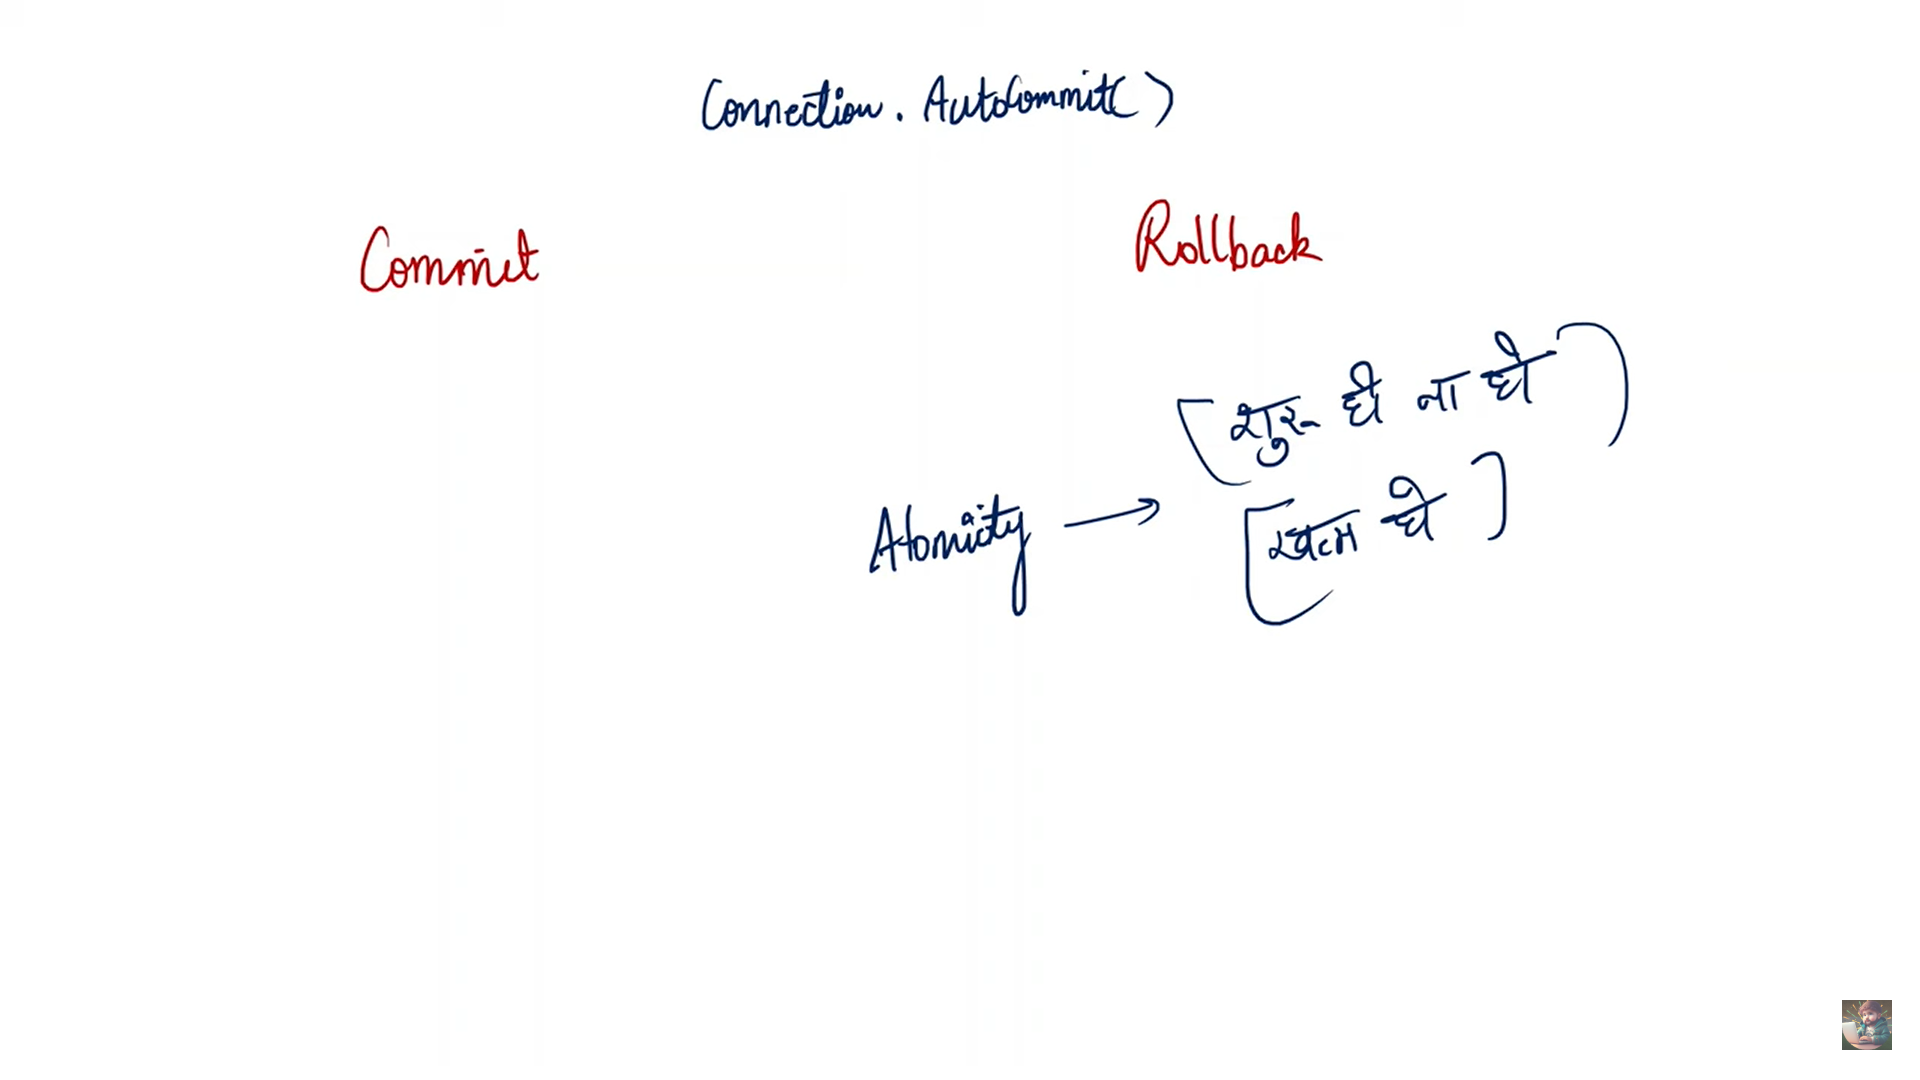 Connection. AutoCommit( )
Commit
Rollback
[ शुरू ही ना हो )
Atomicity → [ खत्म हो ]